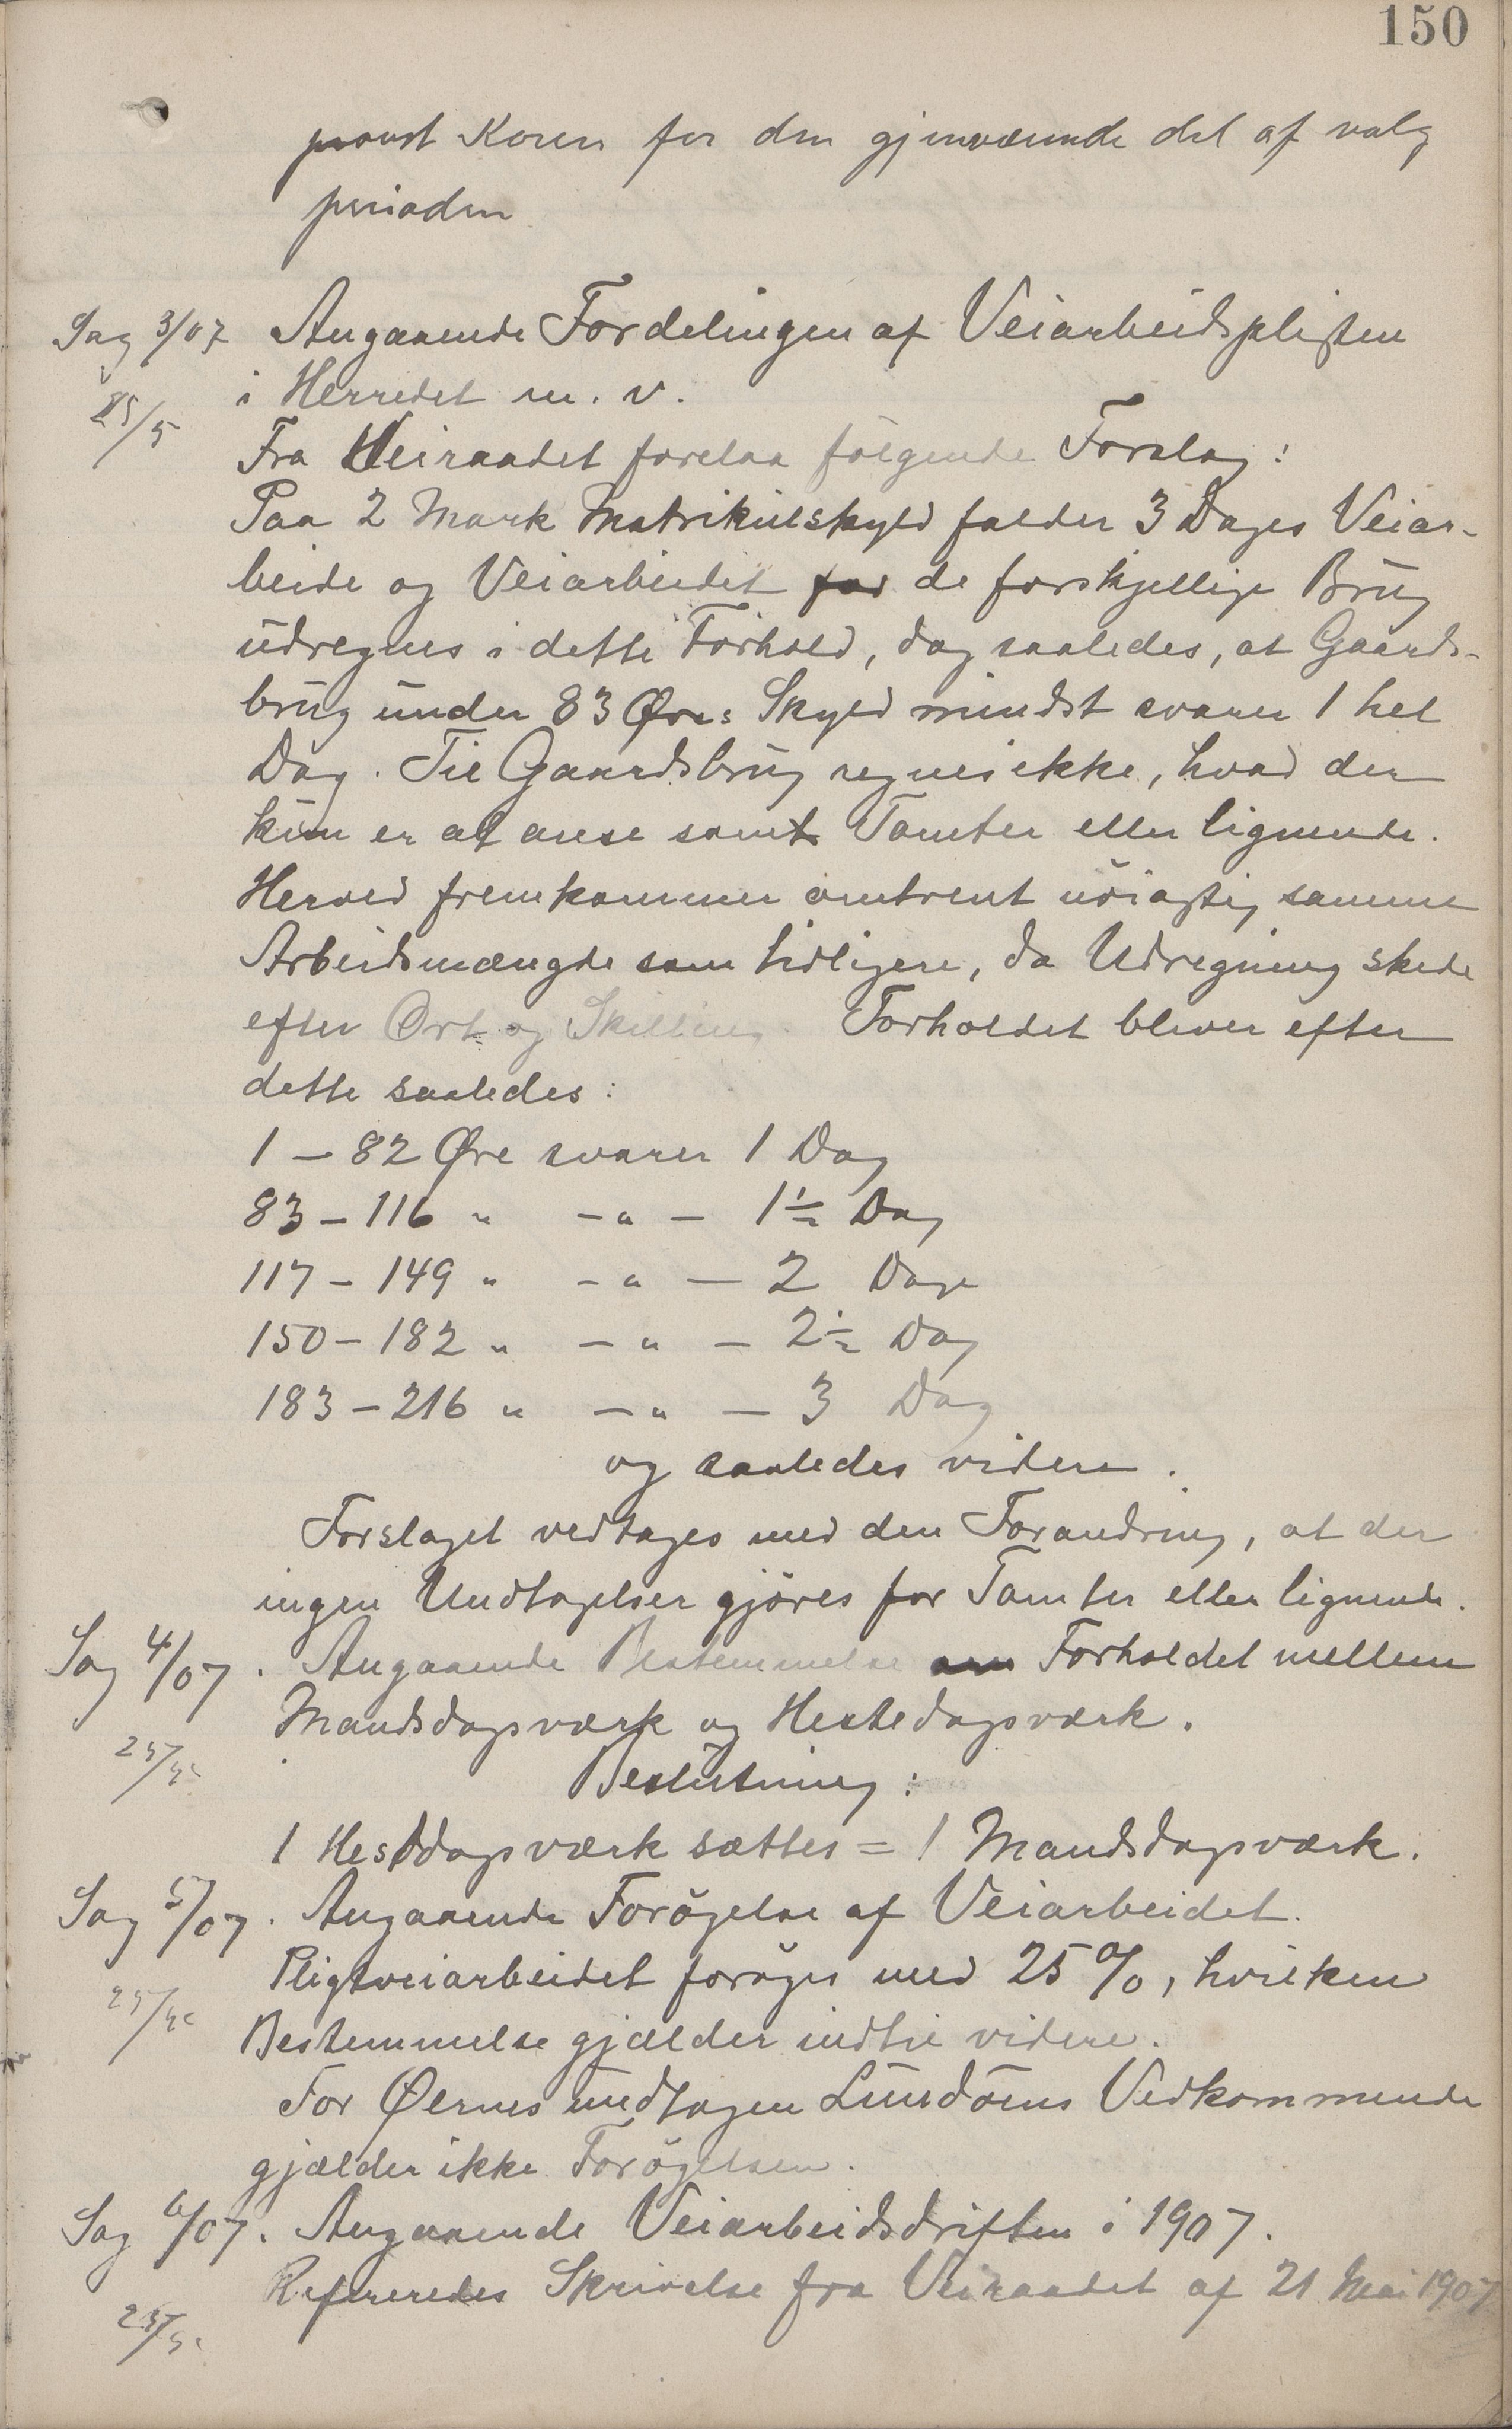 150
provst Koren for den gjenværende del af valg
perioden
Sag 3/07 Angaaende Fordelingen af Veiarbeidspligten
i Herredet m. v.
25/5
Fra Veiraadet forelaa følgende Forslag:
Paa 2 Mark Matrikulskyld falder 3 Dages Veiar-
beide og Veiarbeidet for de forskjellige Brug
udregnes i dette Forhold, dog saaledes, at Gaards-
brug under 83 Øres Skyld mindst svarer 1 hel
Dag. Til Gaardsbrug regnes ikke, hvad der
kun er at anse som Tomter eller lignende.
Herved fremkommer omtrent nöiagtig samme
Arbeidsmængde som tidligere, da Udregning skede
efter Ort og Skilling. Forholdet bliver efter
dette saaledes:
1 – 82 Øre svarer 1 Dag
83 – 116 " – " – 1½ Dag
117 – 149 " – " – 2 Dage
150 – 182 " – " – 2½ Dag
183 – 216 " – " – 3 Dag
og saaledes videre.
Forslaget vedtages med den Forandring, at der
ingen Undtagelser gjöres for Tomter eller lignende.
Sag 4/07. Angaaende Bestemmelse om Forholdet mellem
Mandsdagsværk og Hestedagsværk.
25/5
Beslutning:
1 Hestdagsværk sættes = 1 Mandsdagsværk.
Sag 5/07. Angaaende Forögelse af Veiarbeidet.
Pligtveiarbeidet foröges med 25 %, hvilken
25/5
Bestemmelse gjælder indtil videre.
For Øernes undtagen Lundöens Vedkommende
gjælder ikke Forögelsen.
Sag 6/07. Angaaende Veiarbeidsdriften i 1907.
Refereredes Skrivelse fra Veiraadet af 21 Mai 1907
25/5